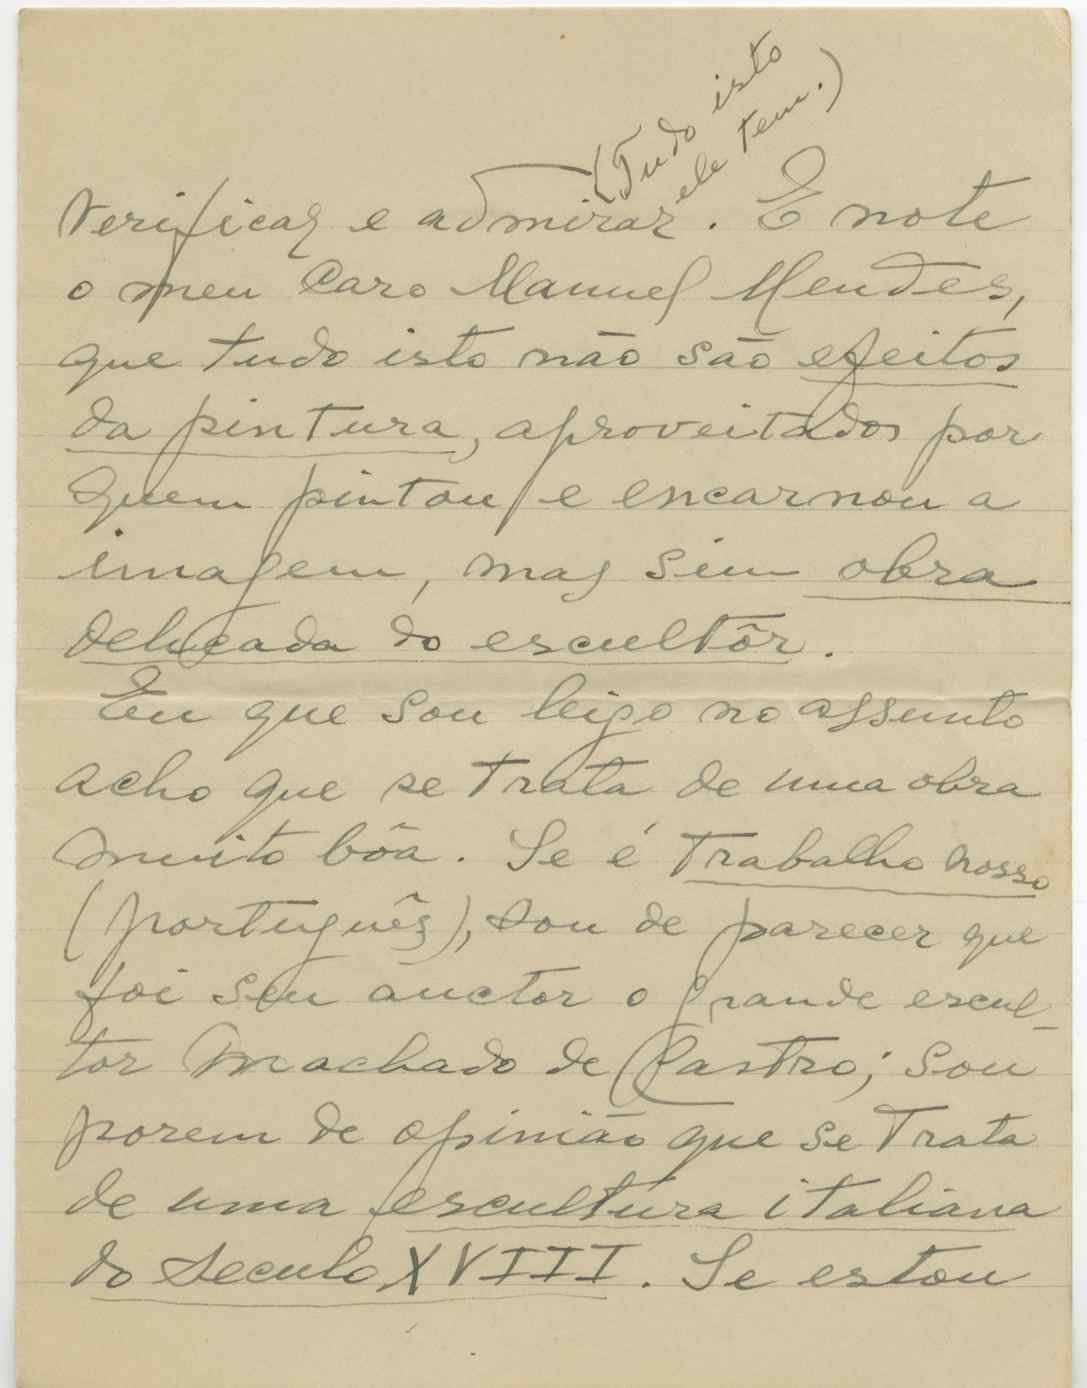 (Tudo isto
ele tem.)
verificar e admirar. E note
o meu Caro Manuel Mendes,
que tudo isto não são efeitos
da pintura, aproveitados por
quem pintou e encarnou a
imagem, mas sim obra
delicada do escultôr.
Eu que sou leigo no assunto
acho que se trata de uma obra
muito bôa. Se é trabalho nosso
(português), sou de parecer que
foi seu auctor o grande escul-
tor Machado de Castro; sou
porem de opinião que se trata
de uma escultura italiana
do seculo XVIII. Se estou